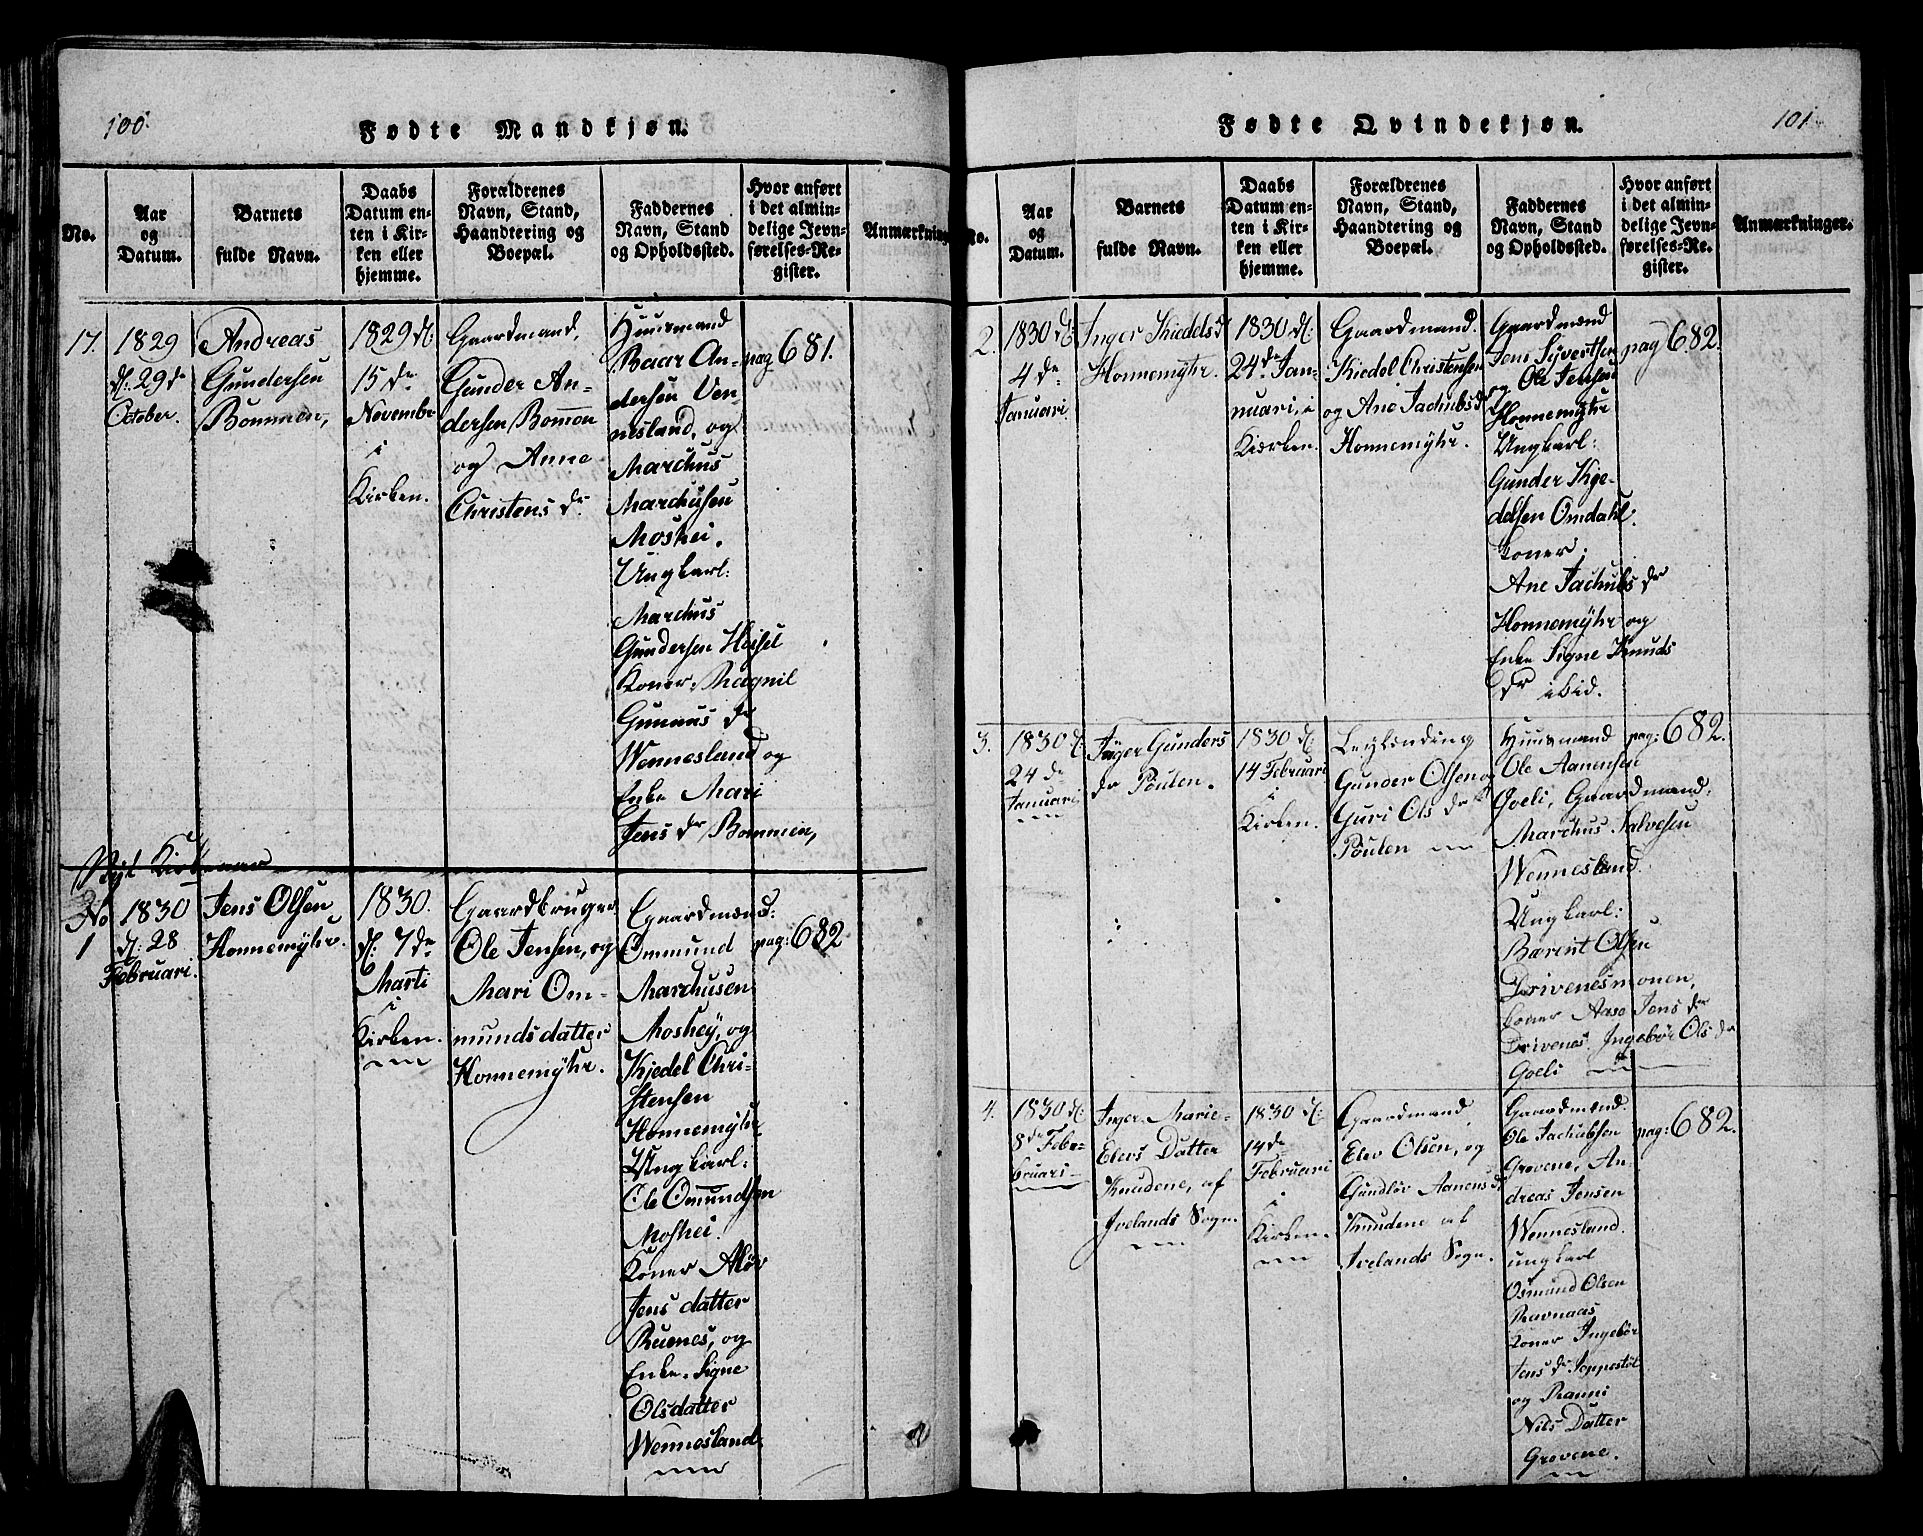 100.
Fødte Mandkjøn.
No.
Aar
og
Datum.
Barnets
fulde Navn.
Daabs
Datum en-
ten i Kir-
ken eller
hjemme.
Forældrenes
Navn, Stand,
Haandtering og
Boepæl.
Faddernes
Navn, Stand
og Opholdssted.
Hvor anført
i det almin-
delige Jevn-
førelses-Re-
gister.
Anmærkning
17.
1829
d: 29 de
October.
Andreas
Gundersen
Bommen,
1829 d:
15 de
Novembr
i
Kirken.
Gaardmand,
Gunder An-
dersen Bommen
og Anne
Christens dr
Huusmand
Baar An-
dersen Ven-
nesland, og
Marchus
Marchusen
Moshei.
Ungkarl:
Marchus
Gundersen Heisel
Koner, Magnil
Gunnus dr
Wennesland og
Enke Mari
Jens dr Bommen,
pag 681.
Nyt Kirkeaar
No
1
1830
d: 28
Februari.
Jens Olsen
Honnemyhr.
1830.
d: 7 de
Marti
i
Kirken.
Gaardbruger
Ole Jensen, og
Mari Om-
mundsdatter
Honnemyhr.
Gaardmænd:
Ommund
Marchusen
Moshey, og
Kjedel Chri-
stensen
Honnemyhr
Ungkarl:
Ole Omundsen
Moshei.
Koner Aløv
Jens datter
Ruenes, og
Enke. Signe
Olsdatter
Wennesland.
pag: 682
101.
Fødte Qvindekjøn.
No.
Aar
og
Datum.
Barnets
fulde Navn.
Daabs
Datum en-
ten i Kir-
ken eller
hjemme.
Forældrenes
Navn, Stand,
Haandtering og
Boepæl.
Faddernes
Navn, Stand
og Opholdssted.
Hvor anført
i det almin-
delige Jevn-
førelses-Re-
gister.
Anmærkninger.
2.
1830 d:
4 de
Januari.
Inger Kiedels dr
Honnemyhr.
1830 d:
24 de Jan-
nuari, i
Kierken.
Gaardmand.
Kiedel Christensen
og Ane Jachubs dr
Honnemyhr.
Gaardmænd
Jens Sivertsen
og Ole Jensen
Honnemyhr
Ungkarl:
Gunder Kige-
delsen Omdahl.
Koner.
Ane Jachubs dr
Honnemyhr og
Enke Signe Knuds
dr ibid.
pag 682.
3.
1830 d:
24 de
Januari
Inger Gunders
dr Poulen.
1830 d:
14 Februari
i
Kirken.
Leylending
Gunder Olsen og
Guri Ols dr
Poulen
Huusmand
Ole Aanensen
Goeli, Gaardmand.
Marchus Salvesen
Wennesland.
Ungkarl:
Barent Olsen
Drivenesmonen,
Koner Aase Jens dr
Drivenes, Ingebør Ols dr
Goeli
pag: 682.
4.
1830 d:
8 de Febr-
bruari
Inger Marie
Elevs Datter
Knudene, af
Ivelands Sogn.
1830 d:
14 de
Februari
i
Kirken.
Gaardmand
Elev Olsen, og
Gundløv Aanens dr
Knudene af
Ivelands Sogn.
Gaardmænd.
Ole Jachubsen
Grovene, An-
dreas Jensen
Wennesland.
ungkarl
Osmund Olsen
Ravnaas
Koner Ingebør
Jens dr Soppestøl
og Ranni
Nils Datter
Grovene.
pag: 682.